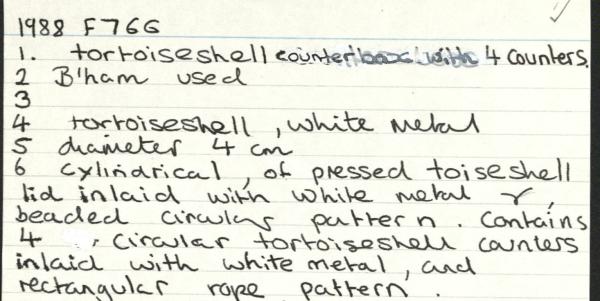 1988 F766
1. tortoiseshell counter box with 4 counters.
2 B'ham used
3
4 tortoiseshell, white metal
5 diameter 4 cm
6 cylindrical, of pressed toiseshell
lid inlaid with white metal r,
beaded circular pattern. Contains
4 circular tortoiseshell counters
inlaid with white metal, and
rectangular rope pattern.